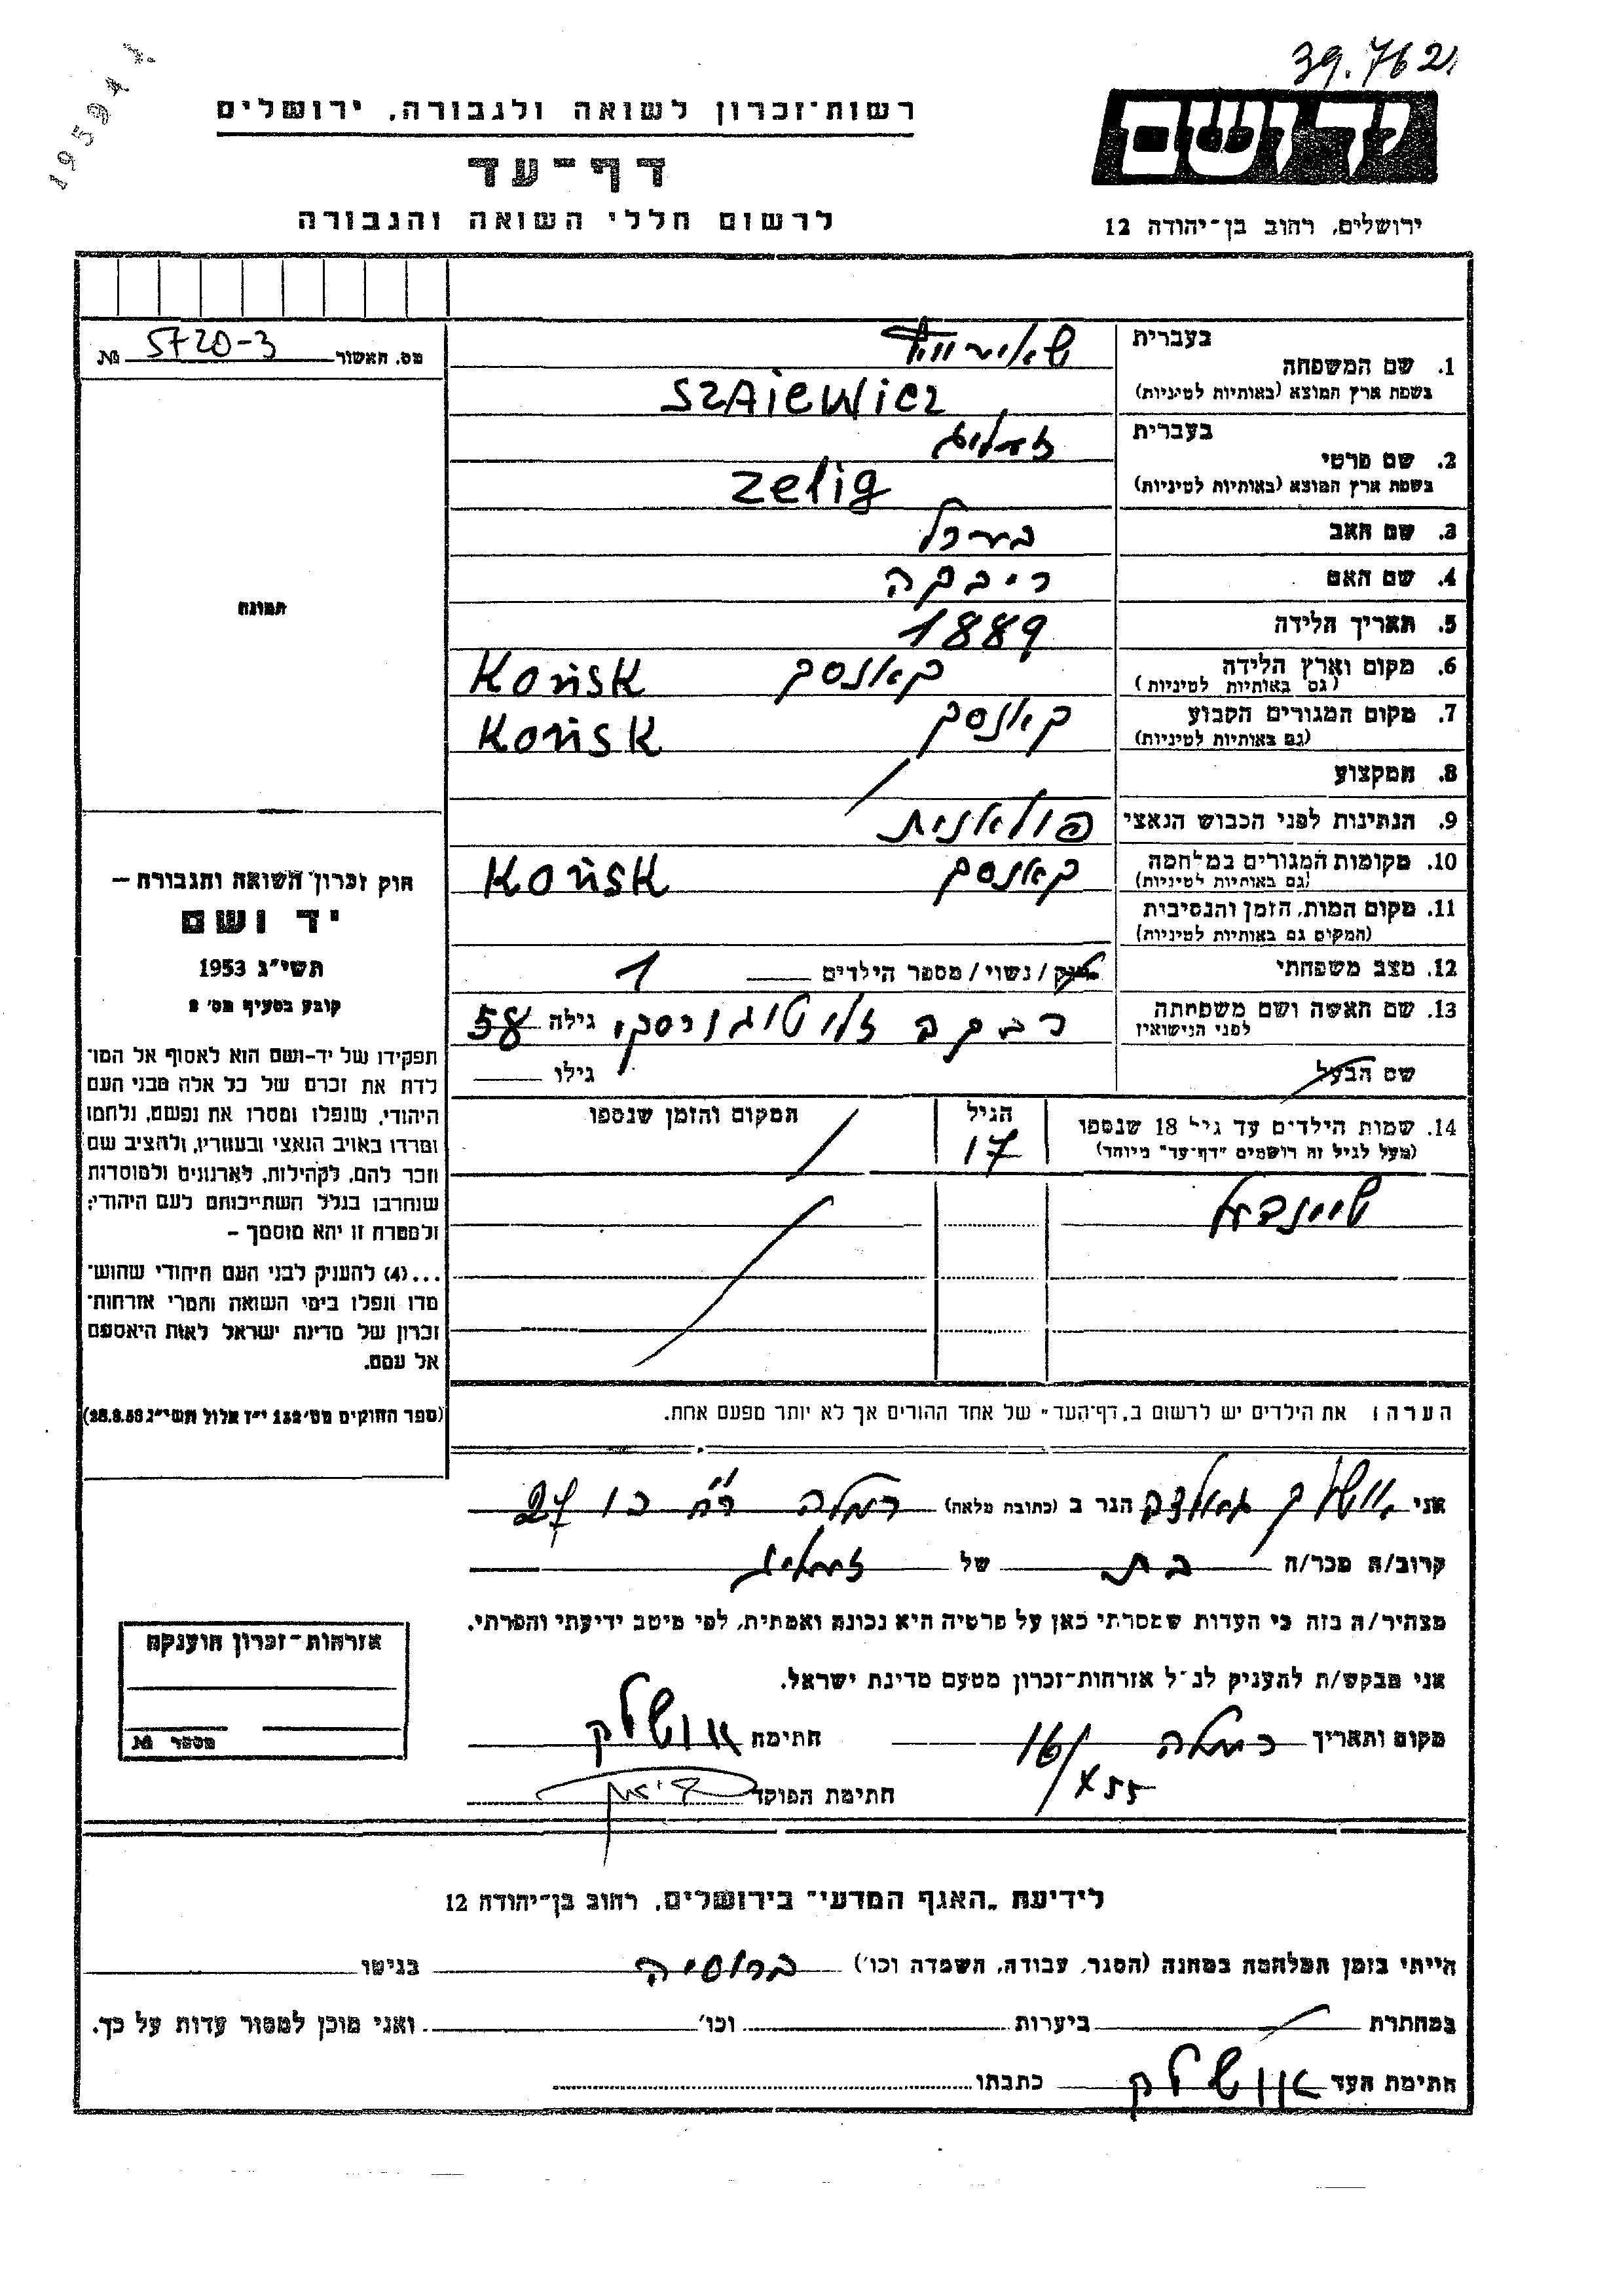 39.762
195941
רשות־זכרון לשואה ולגבורה, ירושלים
יד ושם
דף־עד
לרשום חללי השואה והגבורה
ירושלים, רחוב בן־יהודה 12
מס. האשור 5720-3 №
תמונה
1. שם המשפחה בעברית
שאיעוויץ
בשפת ארץ המוצא (באותיות לטיניות) SZAIEWICZ
2. שם פרטי בעברית זעליג
בשפת ארץ המוצא (באותיות לטיניות) Zelig
3. שם האב בערל
4. שם האם ריבקה
5. תאריך הלידה 1889
6. מקום וארץ הלידה (גם באותיות לטיניות) קאנסק Końsk
7. מקום המגורים הקבוע (גם באותיות לטיניות) קאנסק Końsk
8. המקצוע
9. הנתינות לפני הכבוש הנאצי פולאנית
10. מקומות המגורים במלחמה (גם באותיות לטיניות) קאנסק Końsk
11. מקום המות, הזמן והנסיבות (המקום גם באותיות לטיניות)
12. מצב משפחתי רוק / נשוי / מספר הילדים 1
13. שם האשה ושם משפחתה לפני הנישואין רבקה גילה 58
שם הבעל גילו
14. שמות הילדים עד גיל 18 שנספו (מעל לגיל זה רושמים "דף־עד" מיוחד)
הגיל 17
המקום והזמן שנספו
שיינדעל
חוק זכרון השואה והגבורה –
יד ושם
תשי״ג 1953
קובע בסעיף מס׳ 2
תפקידו של יד-ושם הוא לאסוף אל המו־
לדת את זכרם של כל אלה מבני העם
היהודי, שנפלו ומסרו את נפשם, נלחמו
ומרדו באויב הנאצי ובעוזריו, ולהציב שם
וזכר להם, לקהילות, לארגונים ולמוסדות
שנחרבו בגלל השתייכותם לעם היהודי;
ולמטרה זו יהא מוסמך –
...(4) להעניק לבני העם היהודי שהוש־
מדו ונפלו בימי השואה והמרי אזרחות־
זכרון של מדינת ישראל לאות היאספם
אל עמם.
(ספר החוקים מס׳ 132 י״ז אלול תשי״ג 28.8.53)
הערה: את הילדים יש לרשום ב„דף־העד״ של אחד ההורים אך לא יותר מפעם אחת.
אני הגר ב (כתובת מלאה) רמלה 27
קרוב/ה מכר/ה בת של זעליג
מצהיר/ה בזה כי העדות שמסרתי כאן על פרטיה היא נכונה ואמתית, לפי מיטב ידיעתי והכרתי.
אני מבקש/ת להעניק לנ״ל אזרחות־זכרון מטעם מדינת ישראל.
מקום ותאריך רמלה 16/X 55 חתימה אושלק
חתימת הפוקד
אזרחות־זכרון הוענקה
מספר №
לידיעת „האגף המדעי״ בירושלים, רחוב בן־יהודה 12
הייתי בזמן המלחמה במחנה (הסגר, עבודה, השמדה וכו׳) ברוסיה בגיטו
במחתרת ביערות וכו׳ ואני מוכן למסור עדות על כך.
חתימת העד אושלק כתבתו